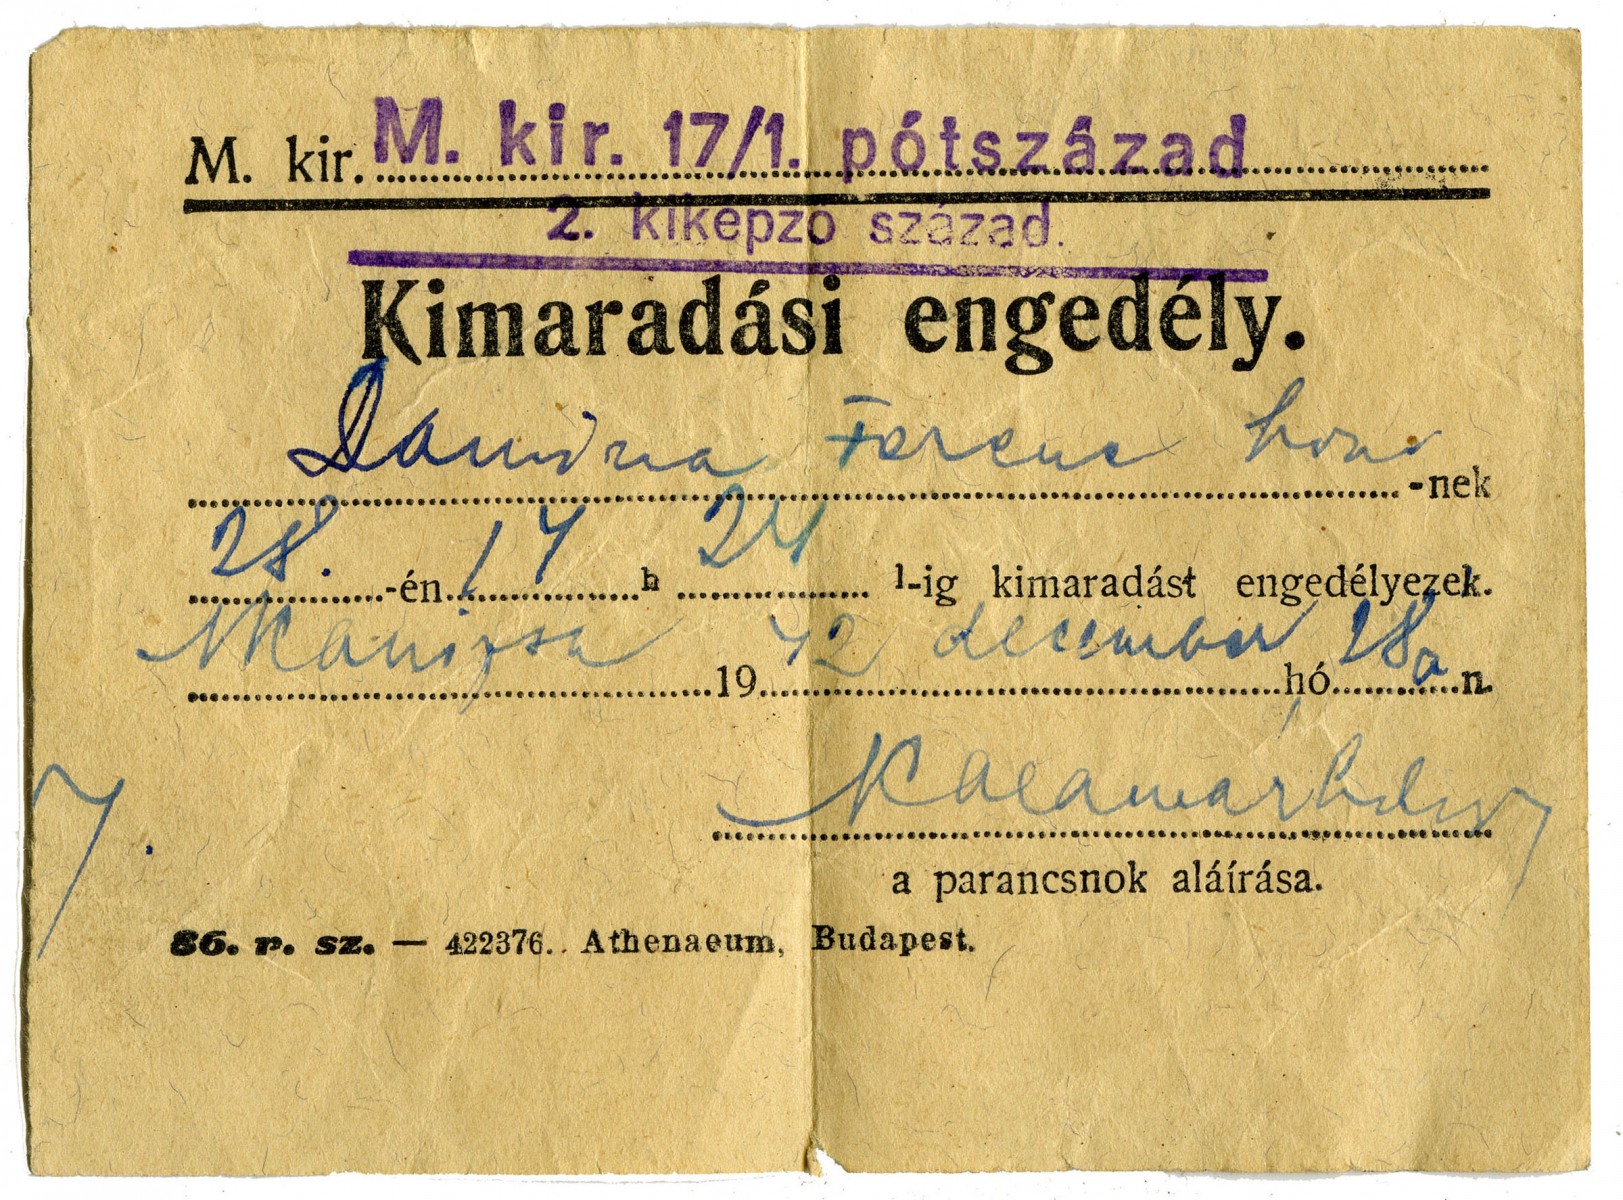 M. kir. M. kir. 17/1. pótszázad
2. kiképző század.
Kimaradási engedély.
Ferenc honv -nek
28. -én 14 h 24 l-ig kimaradást engedélyezek.
NKanizsa 1942 december hó 28 án.
a parancsnok aláírása.
86. r. sz. — 422376. Athenaeum, Budapest.